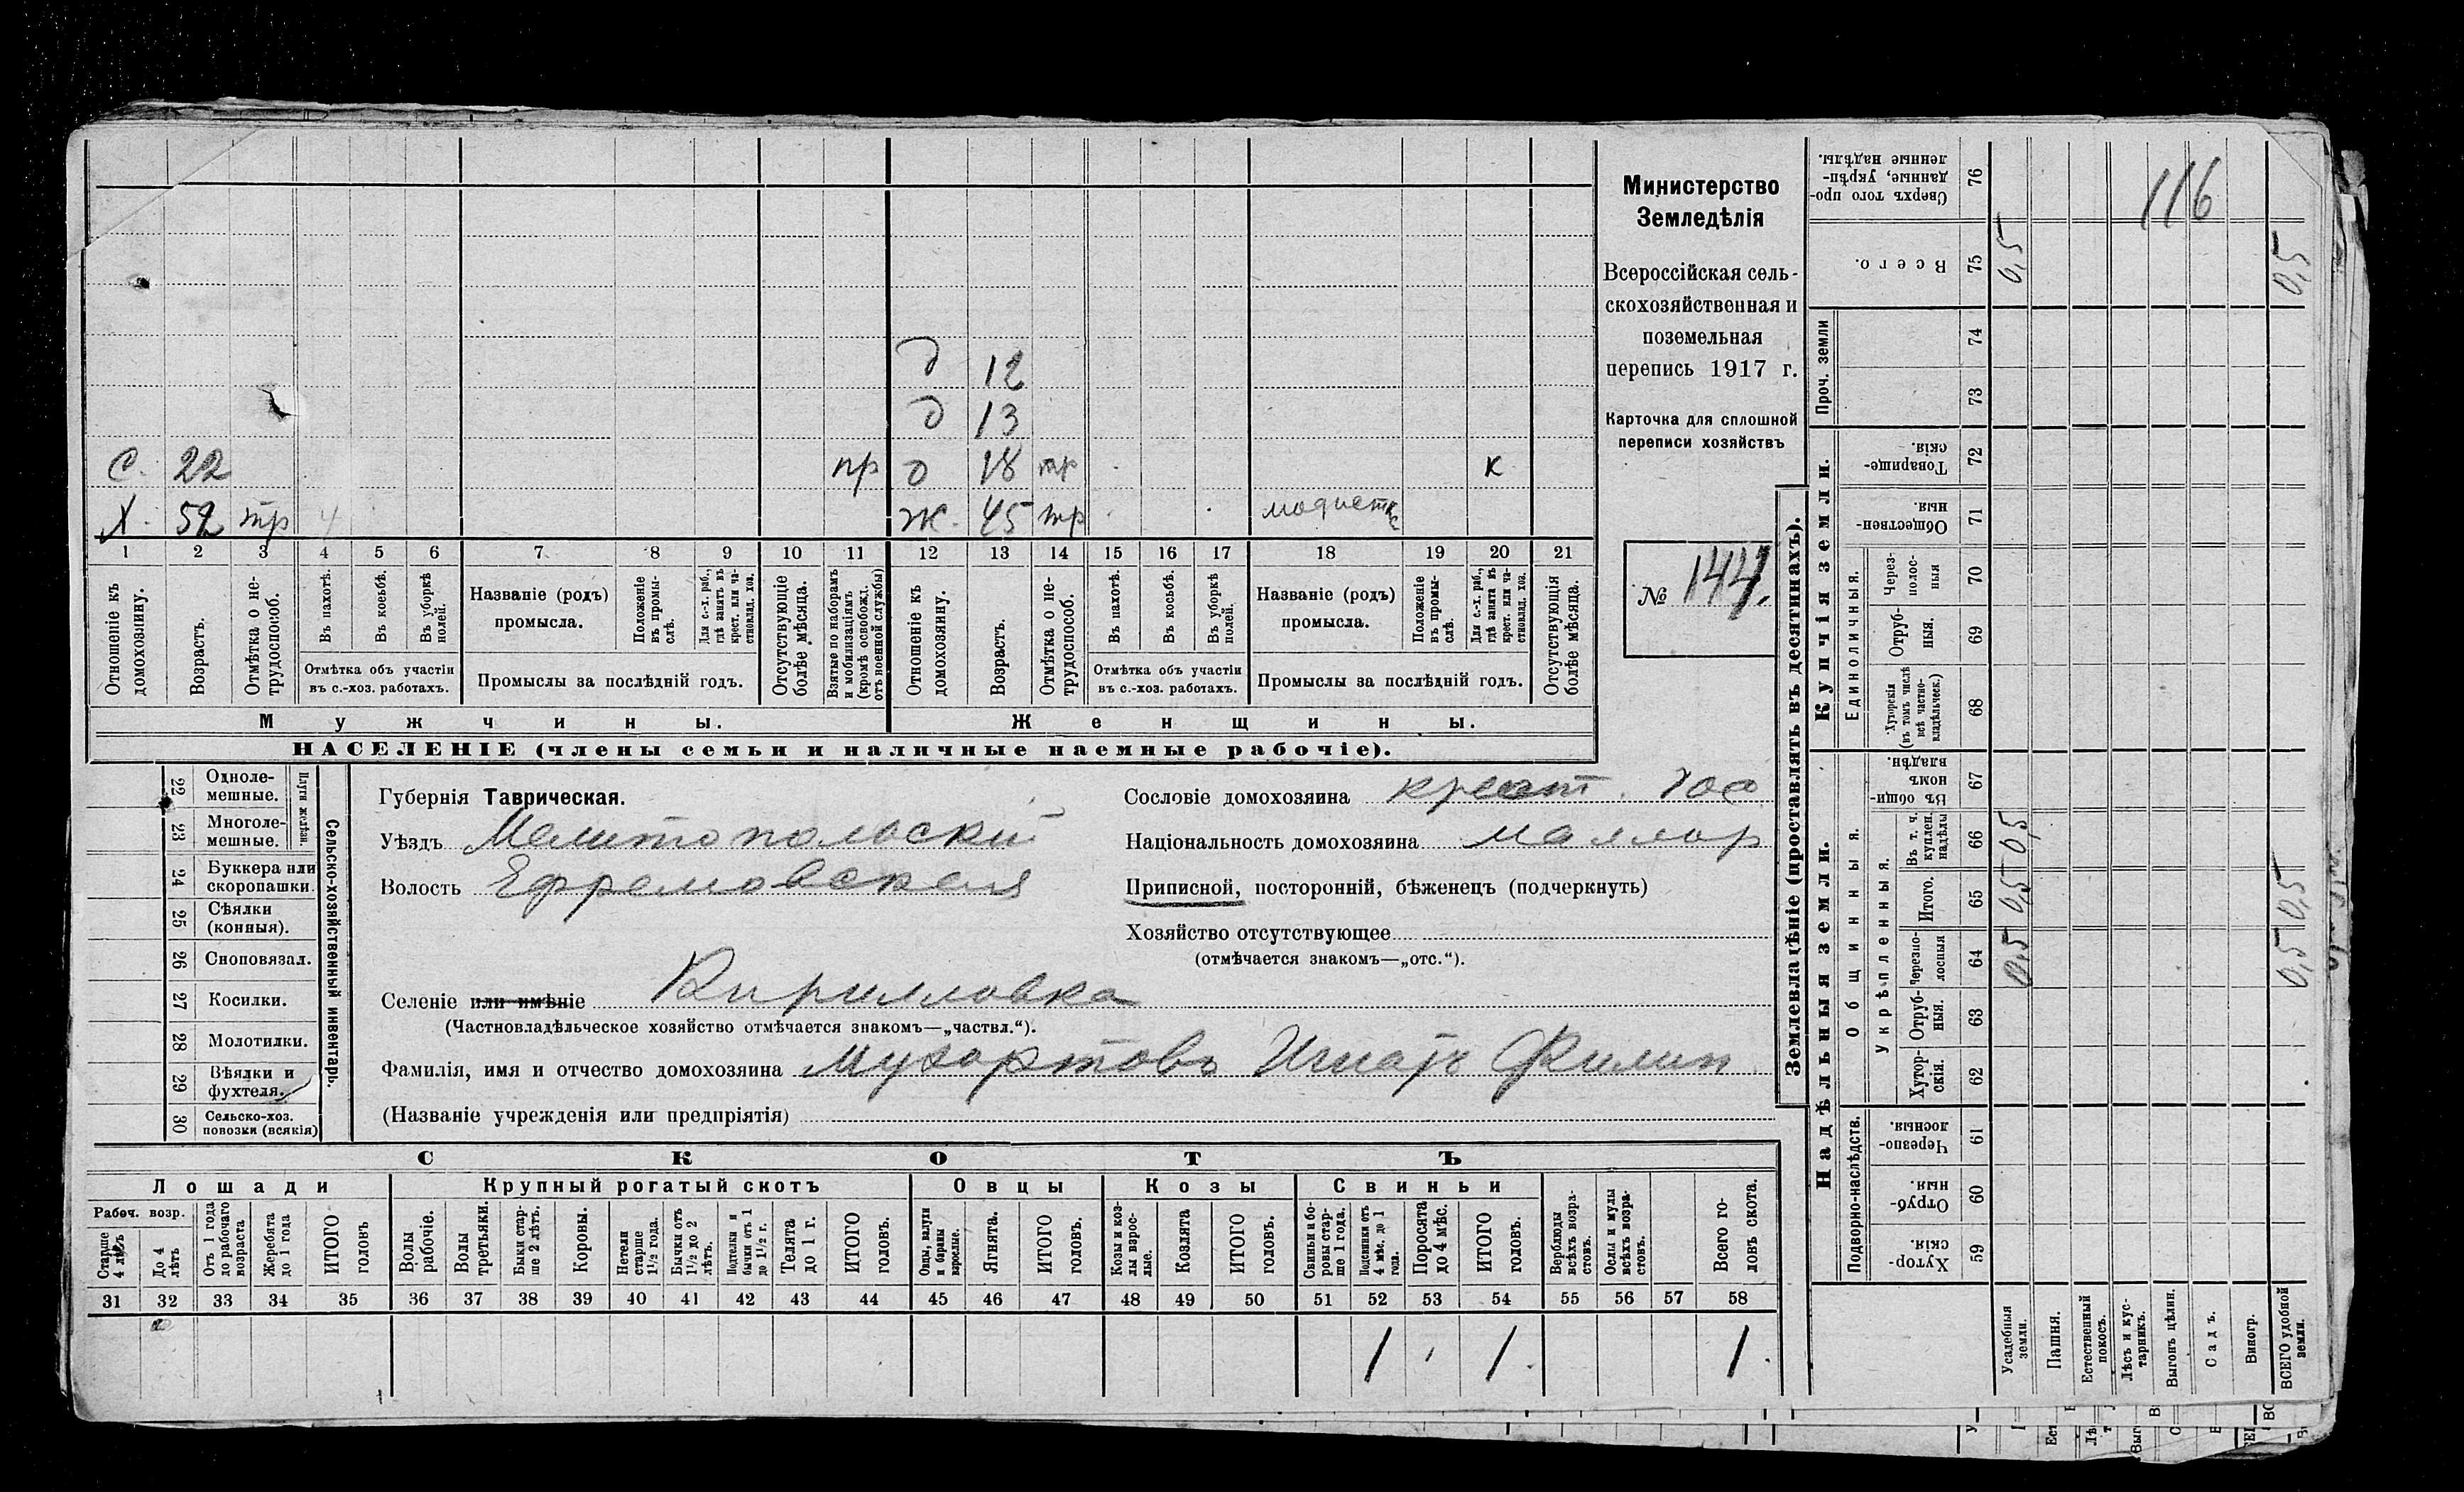 Министерство
Земледѣлія
Всероссійская сель-
скохозяйственная и
поземельная
перепись 1917 г.
Карточка для сплошной
переписи хозяйствъ
№ 144.
116
д 12
д 13
С. 22 пр д 18 тр к
Х. 52 тр ч Ж. 45 тр модистк
1 2 3 4 5 6 7 8 9 10 11 12 13 14 15 16 17 18 19 20 21
Отношеніе къ домохозяину.
Возрастъ.
Отмѣтка о не-трудоспособ.
Въ пахотѣ.
Въ косьбѣ.
Въ уборкѣ полей.
Отмѣтка объ участіи
въ с.-хоз. работахъ.
Названіе (родъ)
промысла.
Положеніе въ промы-слѣ.
Для с.-х. раб., гдѣ занятъ въ крест. или ча-стновлад. хоз.
Промыслы за послѣдній годъ.
Отсутствующіе болѣе мѣсяца.
Взятые по наборамъ и мобилизаціямъ (кромѣ освобожд. отъ военной службы)
Отношеніе къ домохозяину.
Возрастъ.
Отмѣтка о не-трудоспособ.
Въ пахотѣ.
Въ косьбѣ.
Въ уборкѣ полей.
Отмѣтка объ участіи
въ с.-хоз. работахъ.
Названіе (родъ)
промысла.
Положеніе въ промы-слѣ.
Для с.-х. раб., гдѣ занята въ крест. или ча-стновлад. хоз.
Промыслы за послѣдній годъ.
Отсутствующія болѣе мѣсяца.
Мужчины.
Женщины.
НАСЕЛЕНІЕ (члены семьи и наличные наемные рабочіе).
22 Одноле-мешные.
23 Многоле-мешные.
Плуги желѣзн.
24 Буккера или скоропашки.
25 Сѣялки (конныя).
26 Сноповязал.
27 Косилки.
28 Молотилки.
29 Вѣялки и фухтеля.
30 Сельско-хоз. повозки (всякія)
Сельско-хозяйственный инвентарь.
Губернія Таврическая.
Уѣздъ Мелитопольскій
Волость Ефремовская
Селеніе или имѣніе Кирилловка
(Частновладѣльческое хозяйство отмѣчается знакомъ—„частвл.“).
Фамилія, имя и отчество домохозяина Мухортовъ Игнатъ Филип
(Названіе учрежденія или предпріятія)
Сословіе домохозяина крест.
Національность домохозяина малоор
Приписной, посторонній, бѣженецъ (подчеркнуть)
Хозяйство отсутствующее
(отмѣчается знакомъ—„отс.“).
СКОТЪ
Лошади
Крупный рогатый скотъ
Овцы
Козы
Свиньи
Рабоч. возр.
Старше 4 лѣтъ
До 4 лѣтъ
Отъ 1 года до рабочаго возраста
Жеребята до 1 года
ИТОГО головъ
Волы рабочіе.
Волы третьяки.
Быки стар-ше 2 лѣтъ.
Коровы.
Нетели старше 1½ года.
Бычки отъ 1½ до 2 лѣтъ.
Подтелки и бычки отъ 1 до 1½ г.
Телята до 1 г.
ИТОГО головъ.
Овцы, валухи и бараны взрослые.
Ягнята.
ИТОГО головъ.
Козы и коз-лы взрос-лые.
Козлята
ИТОГО головъ.
Свиньи и бо-ровы стар-ше 1 года.
Подсвинки отъ 4 мѣс. до 1 года.
Поросята до 4 мѣс.
ИТОГО головъ.
Верблюды всѣхъ возра-стовъ.
Ослы и мулы всѣхъ возра-стовъ.
Всего го-ловъ скота.
31 32 33 34 35 36 37 38 39 40 41 42 43 44 45 46 47 48 49 50 51 52 53 54 55 56 57 58
1 1 1
Землевладѣніе (проставлять въ десятинахъ).
Надѣльныя земли.
Купчія земли.
Проч. земли
Подворно-наслѣдств.
Общинныя.
Укрѣпленныя.
Единоличныя.
59 Хутор-скія.
60 Отруб-ныя.
61 Черезпо-лосныя.
62 Хутор-скія.
63 Отруб-ныя.
64 Черезпо-лосныя 0,5 0,5
65 Итого. 0,5 0,5
66 Въ т. ч. куплен. надѣлы 0,5
67 Въ общин-номъ владѣн.
68 Хуторскія (въ томъ числѣ всѣ частно-владѣльческ.)
69 Отруб-ныя.
70 Через-полос-ныя
71 Обществен-ныя.
72 Товарище-скія.
73
74
75 Всего. 0,5 0,5
76 Сверхъ того про-данные, укрѣп-ленные надѣлы.
Усадебныя земли.
Пашня.
Естественный покосъ.
Лѣсъ и кус-тарникъ.
Выгонъ цѣлин.
Садъ.
Виногр.
ВСЕГО удобной земли.